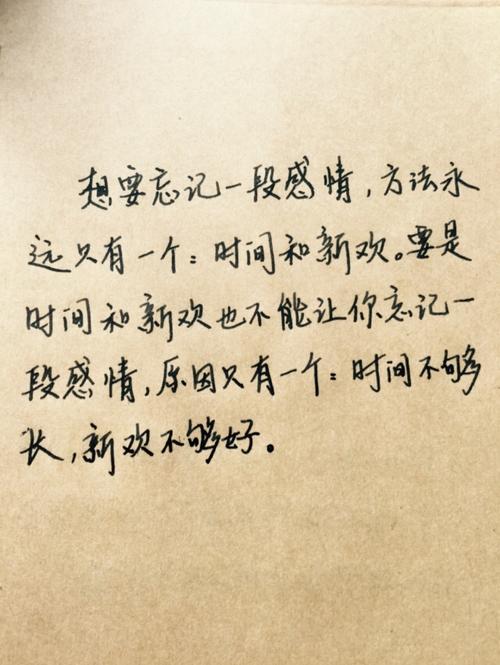 想要忘记一段感情，方法永
远只有一个：时间和新欢。要是
时间和新欢也不能让你忘记一
段感情，原因只有一个：时间不够
长，新欢不够好。